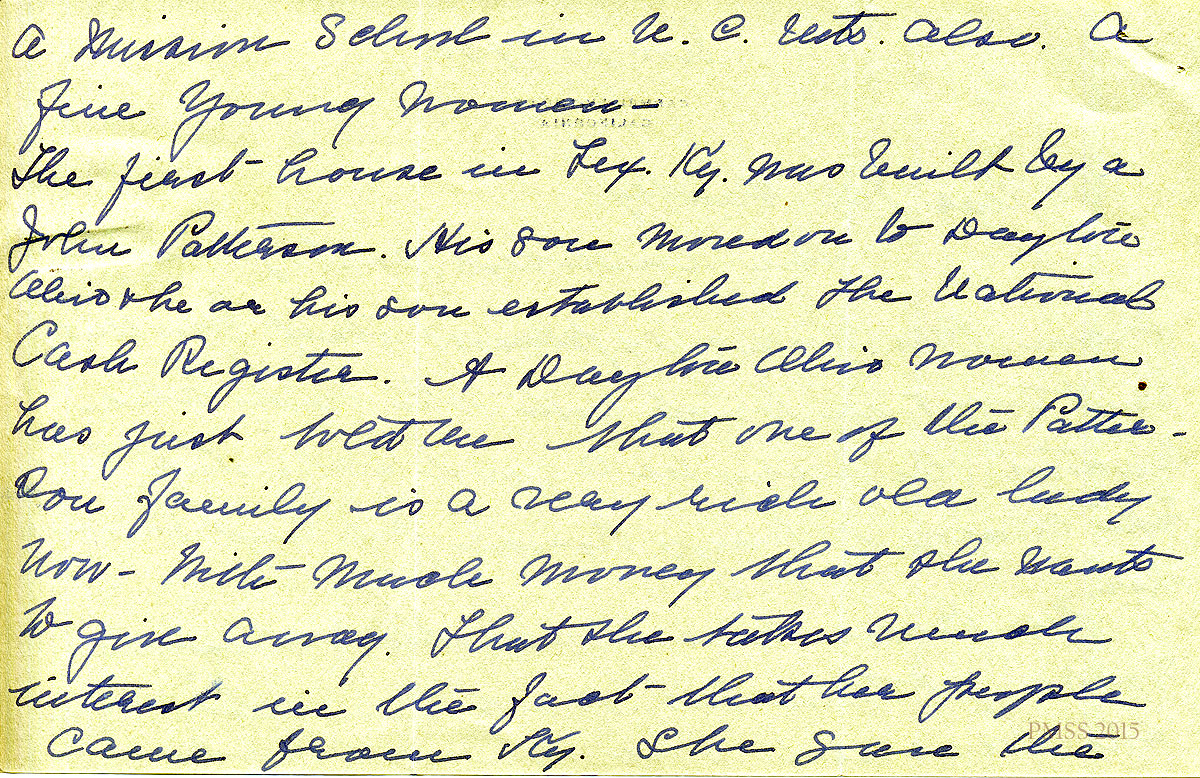 a Mission School in N. C. Mts. also. A
fine Young Women—
The first house in Lex. Ky. was built by a
John Patterson. His son moved on to Dayton
Ohio & he or his son established the National
Cash Register. A Dayton Ohio Woman
has just told me that one of the Patter-
son family is a very rich old lady
now – With much money that she wants
to give away. That she takes much
interest in the fact that her people
came from Ky. She gave the
PMSS 2015